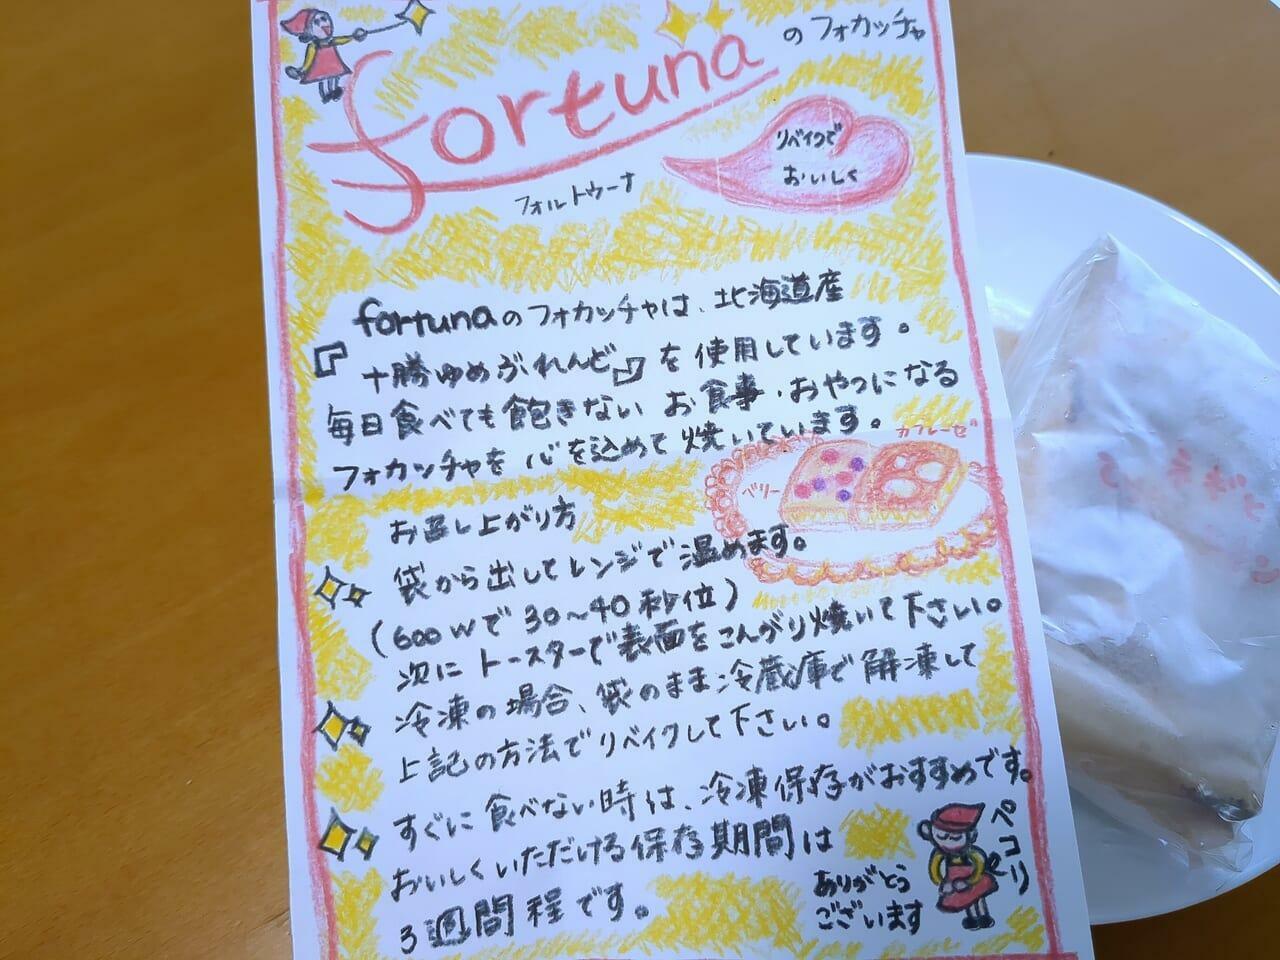 fortuna
のフォカッチャ
フォルトゥーナ
リベイクで
おいしく
fortunaのフォカッチャは、北海道産
『十勝ゆめぶれんど』を使用しています。
毎日食べても飽きない お食事・おやつになる
フォカッチャを 心を込めて焼いています。
カプレーゼ
ベリー
お召し上がり方
袋から出してレンジで温めます。
(600wで30〜40秒位)
次にトースターで表面をこんがり焼いて下さい。
冷凍の場合、袋のまま冷蔵庫で解凍して
上記の方法でリベイクして下さい。
すぐに食べない時は、冷凍保存がおすすめです。
おいしくいただける保存期間は
3週間程です。
ありがとう
ございます
ペコリ